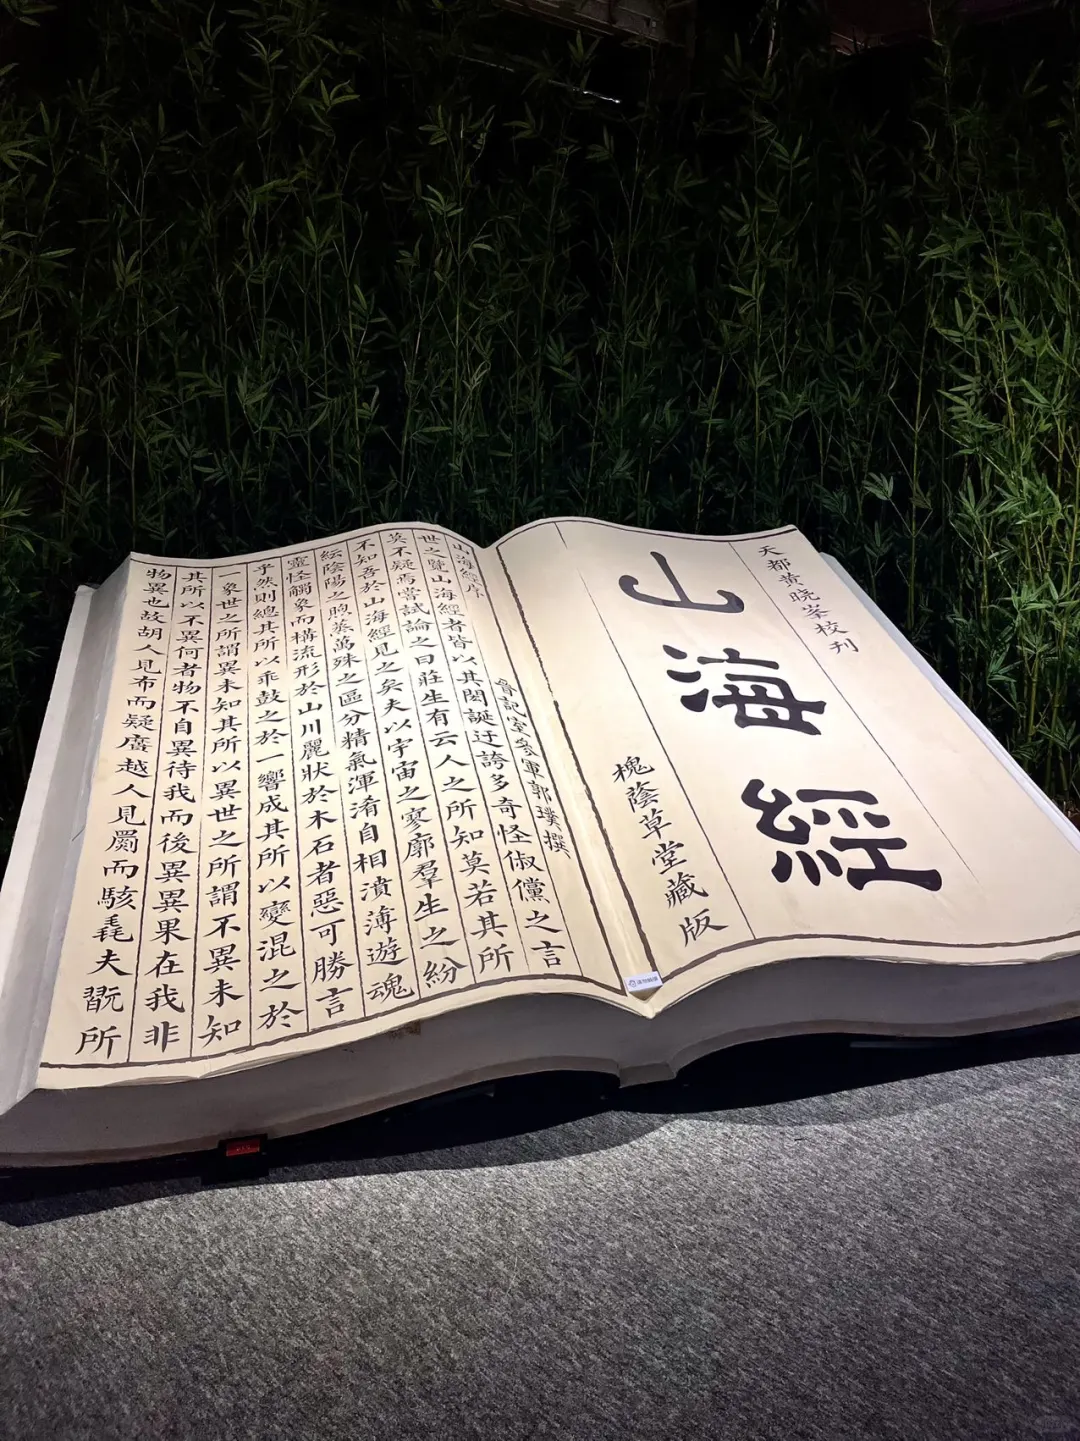 天都黄晓峯校刊
山海經
槐蔭草堂藏版
山海經序
晉記室參軍郭璞撰
世之覽山海經者皆以其閎誕迂誇多奇怪俶儻之言
莫不疑焉嘗試論之曰莊生有云人之所知莫若其所
不知吾於山海經見之矣夫以宇宙之寥廓羣生之紛
紜陰陽之煦蒸萬殊之區分精氣渾淆自相潰薄遊魂
靈怪觸象而構流形於山川麗狀於木石者惡可勝言
乎然則總其所以乖鼓之於一響成其所以變混之於
一象世之所謂異未知其所以異世之所謂不異未知
其所以不異何者物不自異待我而後異異果在我非
物異也故胡人見布而疑黂越人見罽而駭毳夫翫所